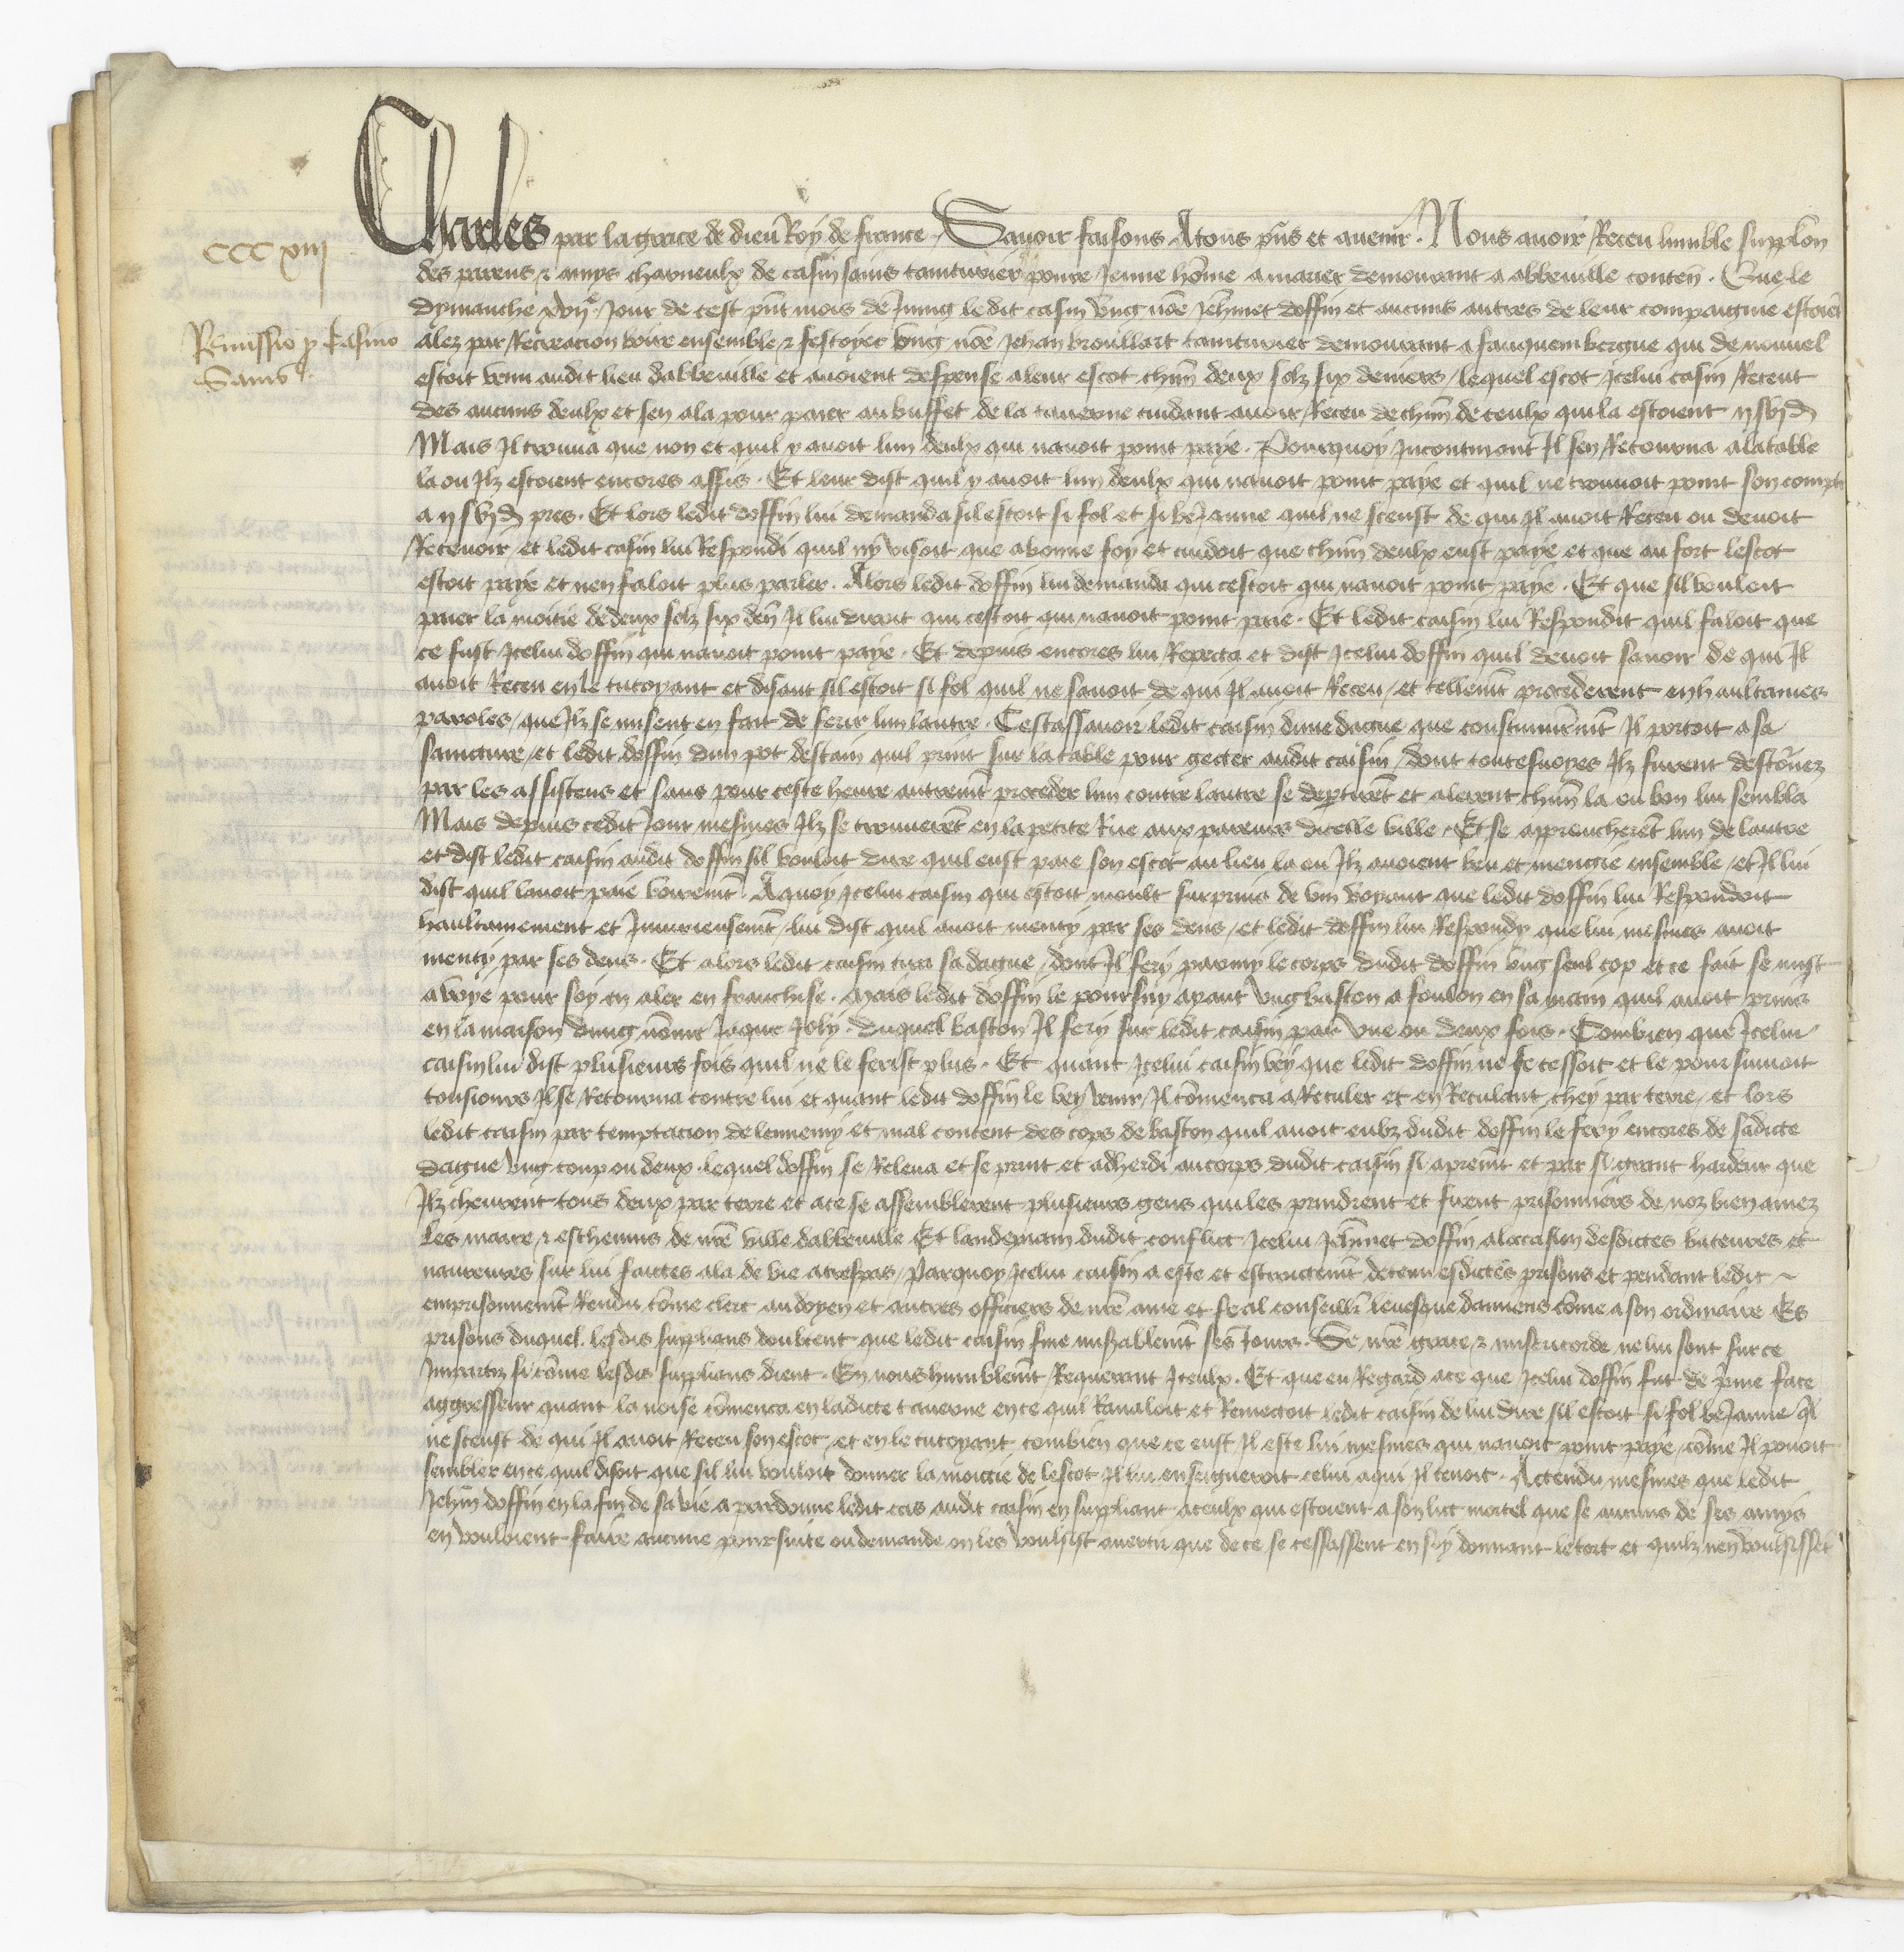 CCC xiij
Remissio p Casino
Sanis
Charles par la grace de dieu Roy de france. Savoir faisons Atous pns et avenir. Nous avoir Receu lumble supplon
des parens & amys charneulx de casin sanis tainturier povre Jeune home amarier demourant a abbeville conten. Que le
dymanche xvije Jour de cest pnt mois de Juing ledit casin ung nome Jehannet doffin et aucuns autres de leur compaignie estoient
alez par Recreacion boire ensemble & festoyer ung nome Jehan brouillart tainturier demourant a fauquembergue qui de nouvel
estoit venu audit lieu dabbeville et avoient despense aleur escot chun deux solz six deniers / lequel escot Icelui casin Receut
des aucuns deulx et sen ala pour paier au buffet de la taverne cuidant avoir Receu de chun de ceulx qui la estoient ij s vj d
Mais Il trouva que non et quil y avoit lun deulx qui navoit point paye. Pourquoy Incontinant Il sen Retourna alatable
la ou Ilz estoient encores assis. Et leur dist quil y avoit lun deulx qui navoit point paye et quil ne trouvoit point son compte
a ij s vj d pres. Et lors ledit doffin lui demanda sil estoit si fol et si beJanne quil ne sceust de qui Il avoit Receu ou devoit
Recevoir et ledit casin lui Respondi quil ny visoit que abonne foy et cuidoit que chun deulx eust paye et que au fort lescot
estoit paye et nen faloit plus parler. Alors ledit doffin lui demanda qui cestoit qui navoit point paye. Et que sil vouloit
paier la moitie dedeux solz six den Il lui diroit qui cestoit qui navoit point paie. Et ledit caisin lui Respondit quil faloit que
ce fust Icelui doffin qui navoit point paye. Et depuis encores lui Repecta et dist Icelui doffin quil devoit savoir de qui Il
avoit Receu en le tutoyant et disant sil estoit si fol quil ne savoit de qui Il avoit Receu / et tellemt procederent en haultaines
paroles / que Ilz se misent en fait de ferir lun lautre. Cestassavoir ledit caisin dune dague que constumeremt Il portoit a sa
saincture / et ledit doffin dun pot destain quil print sur la table pour gecter audit caisin / dont toutesvoyes Ilz furent destournez
par les assistens et sans pour ceste heure autremt proceder lun contre lautre se departiret et alerent chun la ou bon lui sembla
Mais depuis cedit Jour mesmes Ilz se trouveret en la petite Rue aux pareurs dicelle ville. Et se approucheret lun de lautre
et dist ledit caisin audit doffin sil vouloit dire quil eust paie son escot au lieu la ou Ilz avoient beu et mengie ensemble / et Il lui
dist quil lavoit paie voiremt. Aquoy Icelui caisin qui estoit moult surprins de vin voyant que ledit doffin lui Respondoit
haultainement et Iniurieusemt / lui dist quil avoit menty par ses dens / et ledit doffin lui Respondy que lui mesmes avoit
menty par ses dens. Et alors ledit caisin tira sa dague / dont Il fery parmy le corps dudit doffin ung seul cop et ce fait se mist
avoye pour soy en aler en franchise. Mais ledit doffin le poursuy ayant ung baston a foulon en sa main quil avoit prins
en la maison dung nomme Jaque Joly. duquel baston Il fery sur ledit caisin par une ou deux fois. Combien que Icelui
caisin lui dist plusieurs fois quil ne le ferist plus. Et quant Icelui caisin vey que ledit doffin ne se cessoit et le poursuivoit
tousiours Il se Retourna contre lui et quant ledit doffin le vey venir / Il comenca a Reculer et en Reculant chey par terre / et lors
ledit caisin par temptacion de lennemy et mal content des cops de baston quil avoit eubz dudit doffin le fery encores de sadicte
dague ung coup ou deux. lequel doffin se Releva et se print et adherdi au corps dudit caisin si apremt et par si grant hardeur que
Ilz cheurent tous deux par terre et ace se assemblerent plusieurs gens qui les prindrent et furent prisonniers de noz bien amez
Les maire & eschevins de nre ville dabbeville Et landemain dudit conflict Icelui Jehannet doffin alocasion desdictes bateures et
navreures sur lui faictes ala de vie atrespas / Parquoy Icelui caisin a este et estroictemt detenu esdictes prisons et pendant ledit
emprisonnemt Rendu come clerc au doyen et autres officiers de nre ame et feal conseillr levesque damiens come a son ordinaire Es
prisons duquel. lesdis supplians doubtent que ledit caisin fine misablemt ses Jours. Se nre grace & misericorde ne lui sont sur ce
Imparties si come lesdis supplians dient. En nous humblemt Requerant Iceulx. Et que eu Regard ace que Icelui doffin fut de prime face
aggresseur quant la noise comenca en ladicte taverne en ce quil Ravaloit et Remectoit ledit caisin de lui dire sil estoit si fol beJanne quil
ne sceust de qui Il avoit Receu son escot / et en le tutoyant combien que ce eust Il este lui mesmes qui navoit point paye / come Il povoit
sembler ence quil disoit que sil lui vouloit donner la moictie de lescot Il lui enseigneroit celui aqui Il tenoit. Actendu mesmes que ledit
Jehan doffin en la fin de sa vie a pardonne ledit cas audit caisin en suppliant aceulx qui estoient a son lict mortel que se aucuns de ses amys
en vouloient faire aucune poursuite ou demande on les voulsist avertir que de ce se cessassent en soy donnant le tort et quilz nen voulsissent